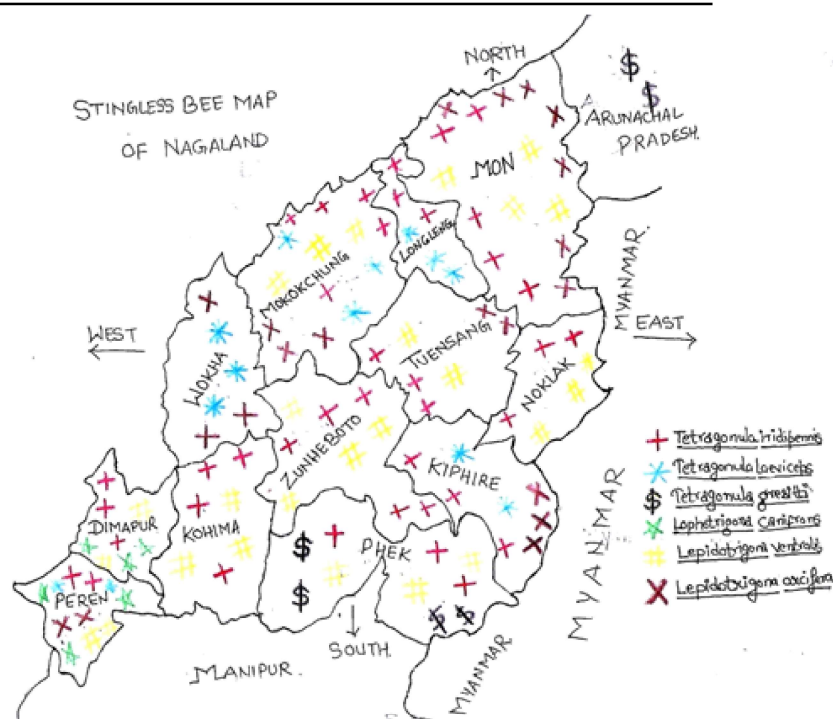 NORTH
STINGLESS BEE MAP
OF NAGALAND
ARUNACHAL
PRADESH.
MON
LONGLENG
MOKOKCHUNG
MYANMAR.
WEST
EAST
TUENSANG
WOKHA
NOKLAK
ZUNHEBOTO
KIPHIRE
DIMAPUR
KOHIMA
PHEK
PEREN
SOUTH.
MANIPUR.
MYANMAR
MYANMAR
Tetragonula iridipennis
Tetragonula laeviceps
Tetragonula
Lophotrigona canifrons
Lepidotrigona ventralis
Lepidotrigona arcifera